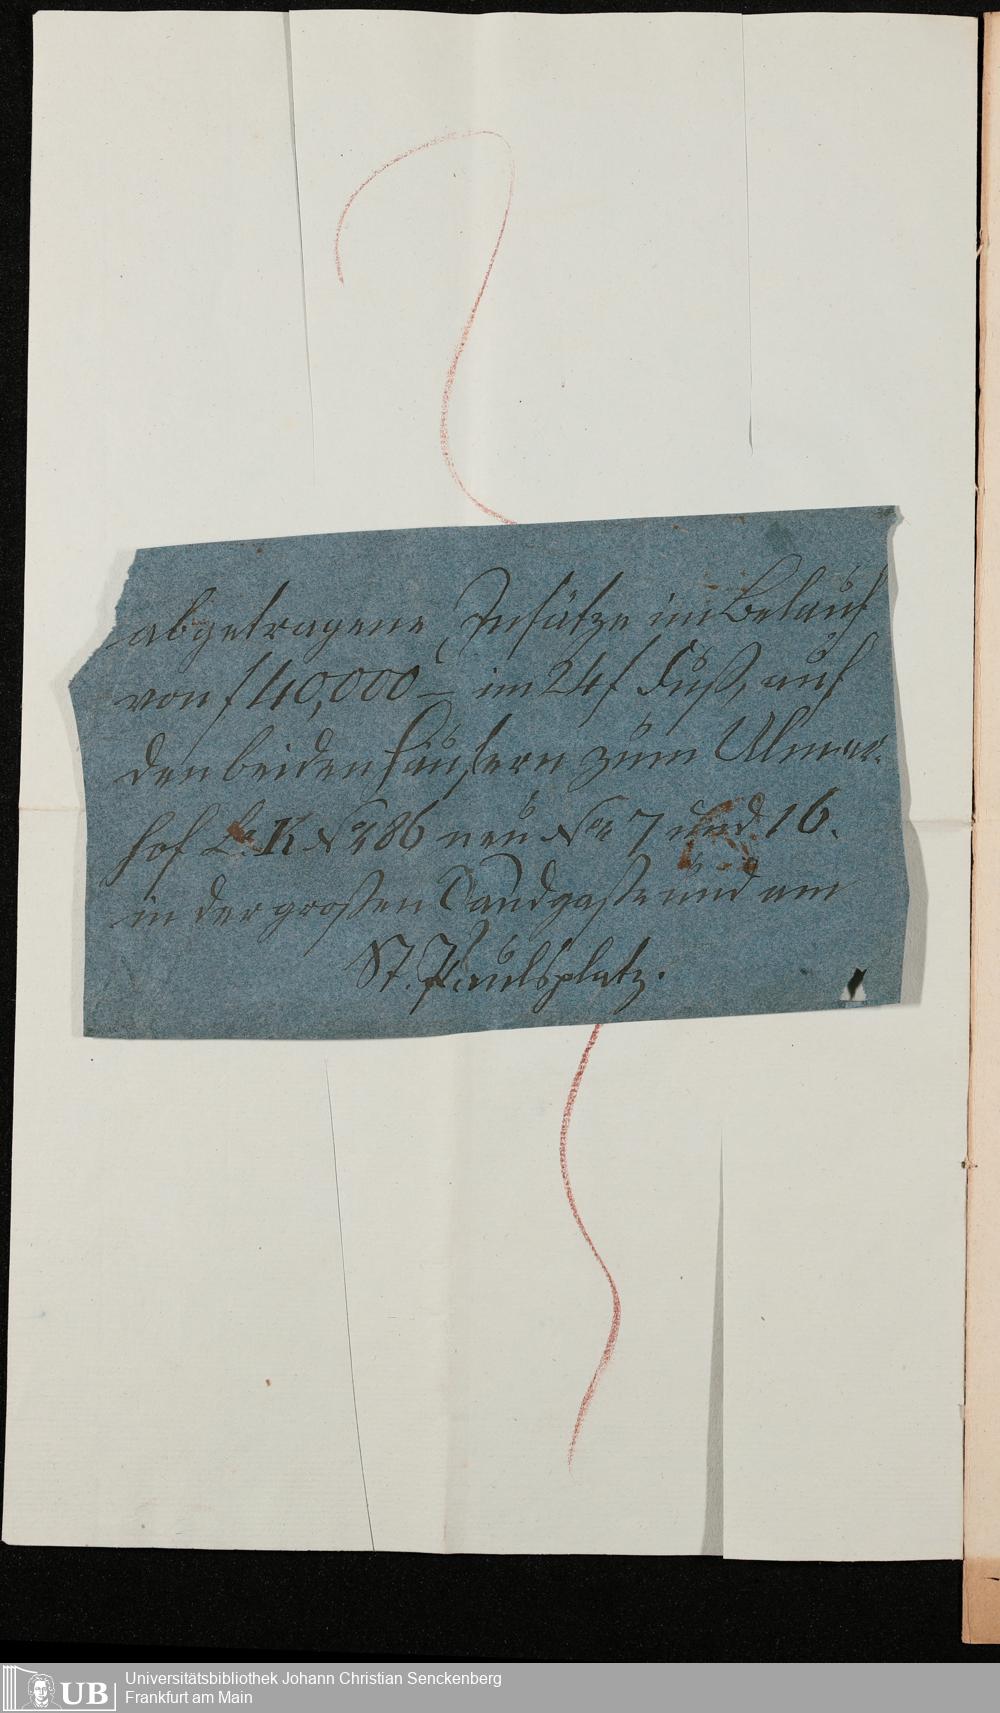 abgetragene Insätze im Belauf
von f 40,000 — im 24 f Fuß, auf
den beiden Häusern zum Ulmer-
hof L. K No. 86 neu No. 7 und 16.
in der großen Sandgasse und am
St. Paulsplatz.
Universitätsbibliothek Johann Christian Senckenberg
Frankfurt am Main
UB